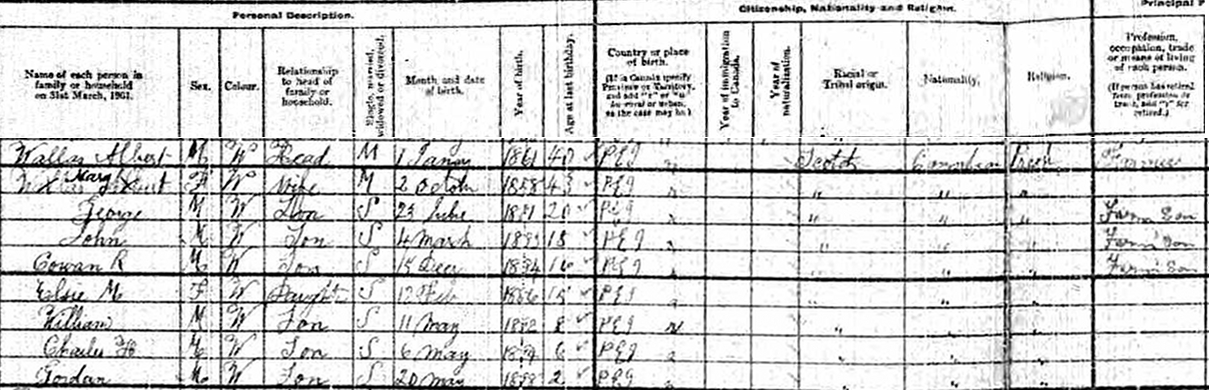 Personal Description. Citizenship, Nationality and Religion. Principal P
Name of each person in family or household on 31st March, 1901. Sex. Colour. Relationship to head of family or household. Single, married, widowed or divorced. Month and date of birth. Year of birth. Age at last birthday. Country or place of birth. (If in Canada specify Province or Territory, and add "r" or "u" for rural or urban, as the case may be.) Year of immigration to Canada. Year of naturalization. Racial or Tribal origin. Nationality. Religion. Profession, occupation, trade or means of living of each person. (If person has retired from profession or trade, add "r" for retired.)
Wallas Albert M W Head M 1 Jany 1861 40 PEI r Scotch Canadian Presb Farmer
Mary F W Wife M 2 Octob 1858 43 PEI r " " "
George M W Son S 23 20 PEI r " " " Farm Son
John M W Son S 4 March 18 PEI r " " " Farm Son
Cowan R M W Son S 15 Decr 16 PEI r " " Farm Son
Elsie M F W Daught S 12 Feb 1886 15 PEI r " "
William M W Son S 11 May 8 PEI r " " "
Charles M W Son S 6 May 6 PEI r " " "
Gordan M W Son S 20 May 2 PEI r " " "